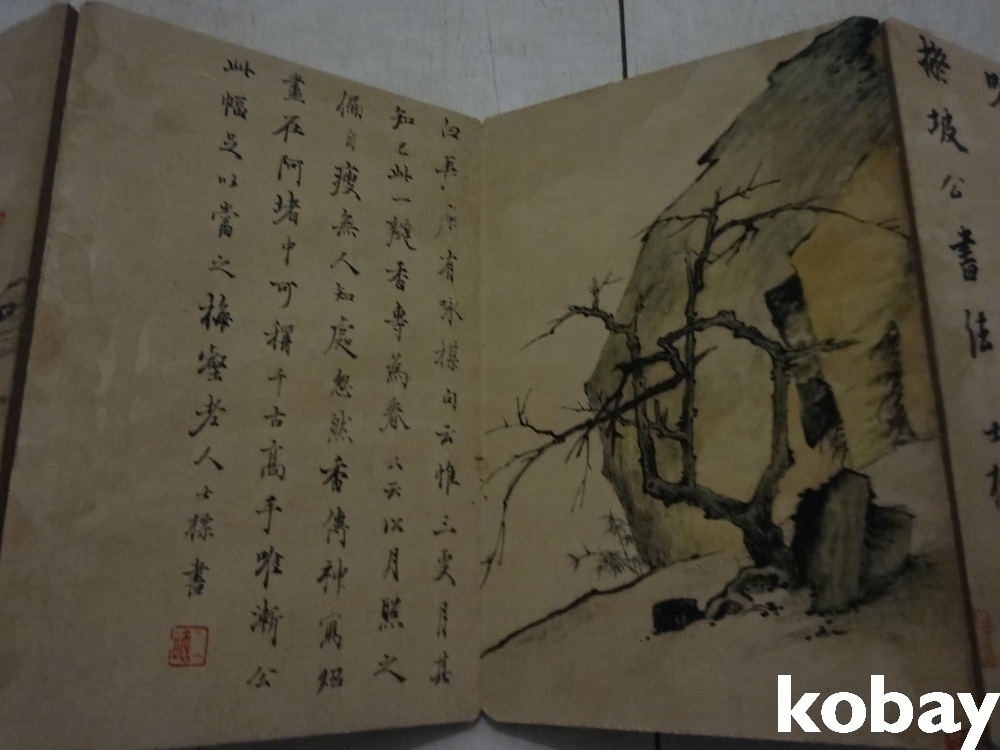 坡公書法
有咏楳句云惟三更月其
知己此一瓣香專為春〻云以月照之
偏自瘦無人知處忽然香傳神寫炤
盡在阿堵中可稱千古高手雖漸公
此幅足以當之梅壑老人士標書
kobay